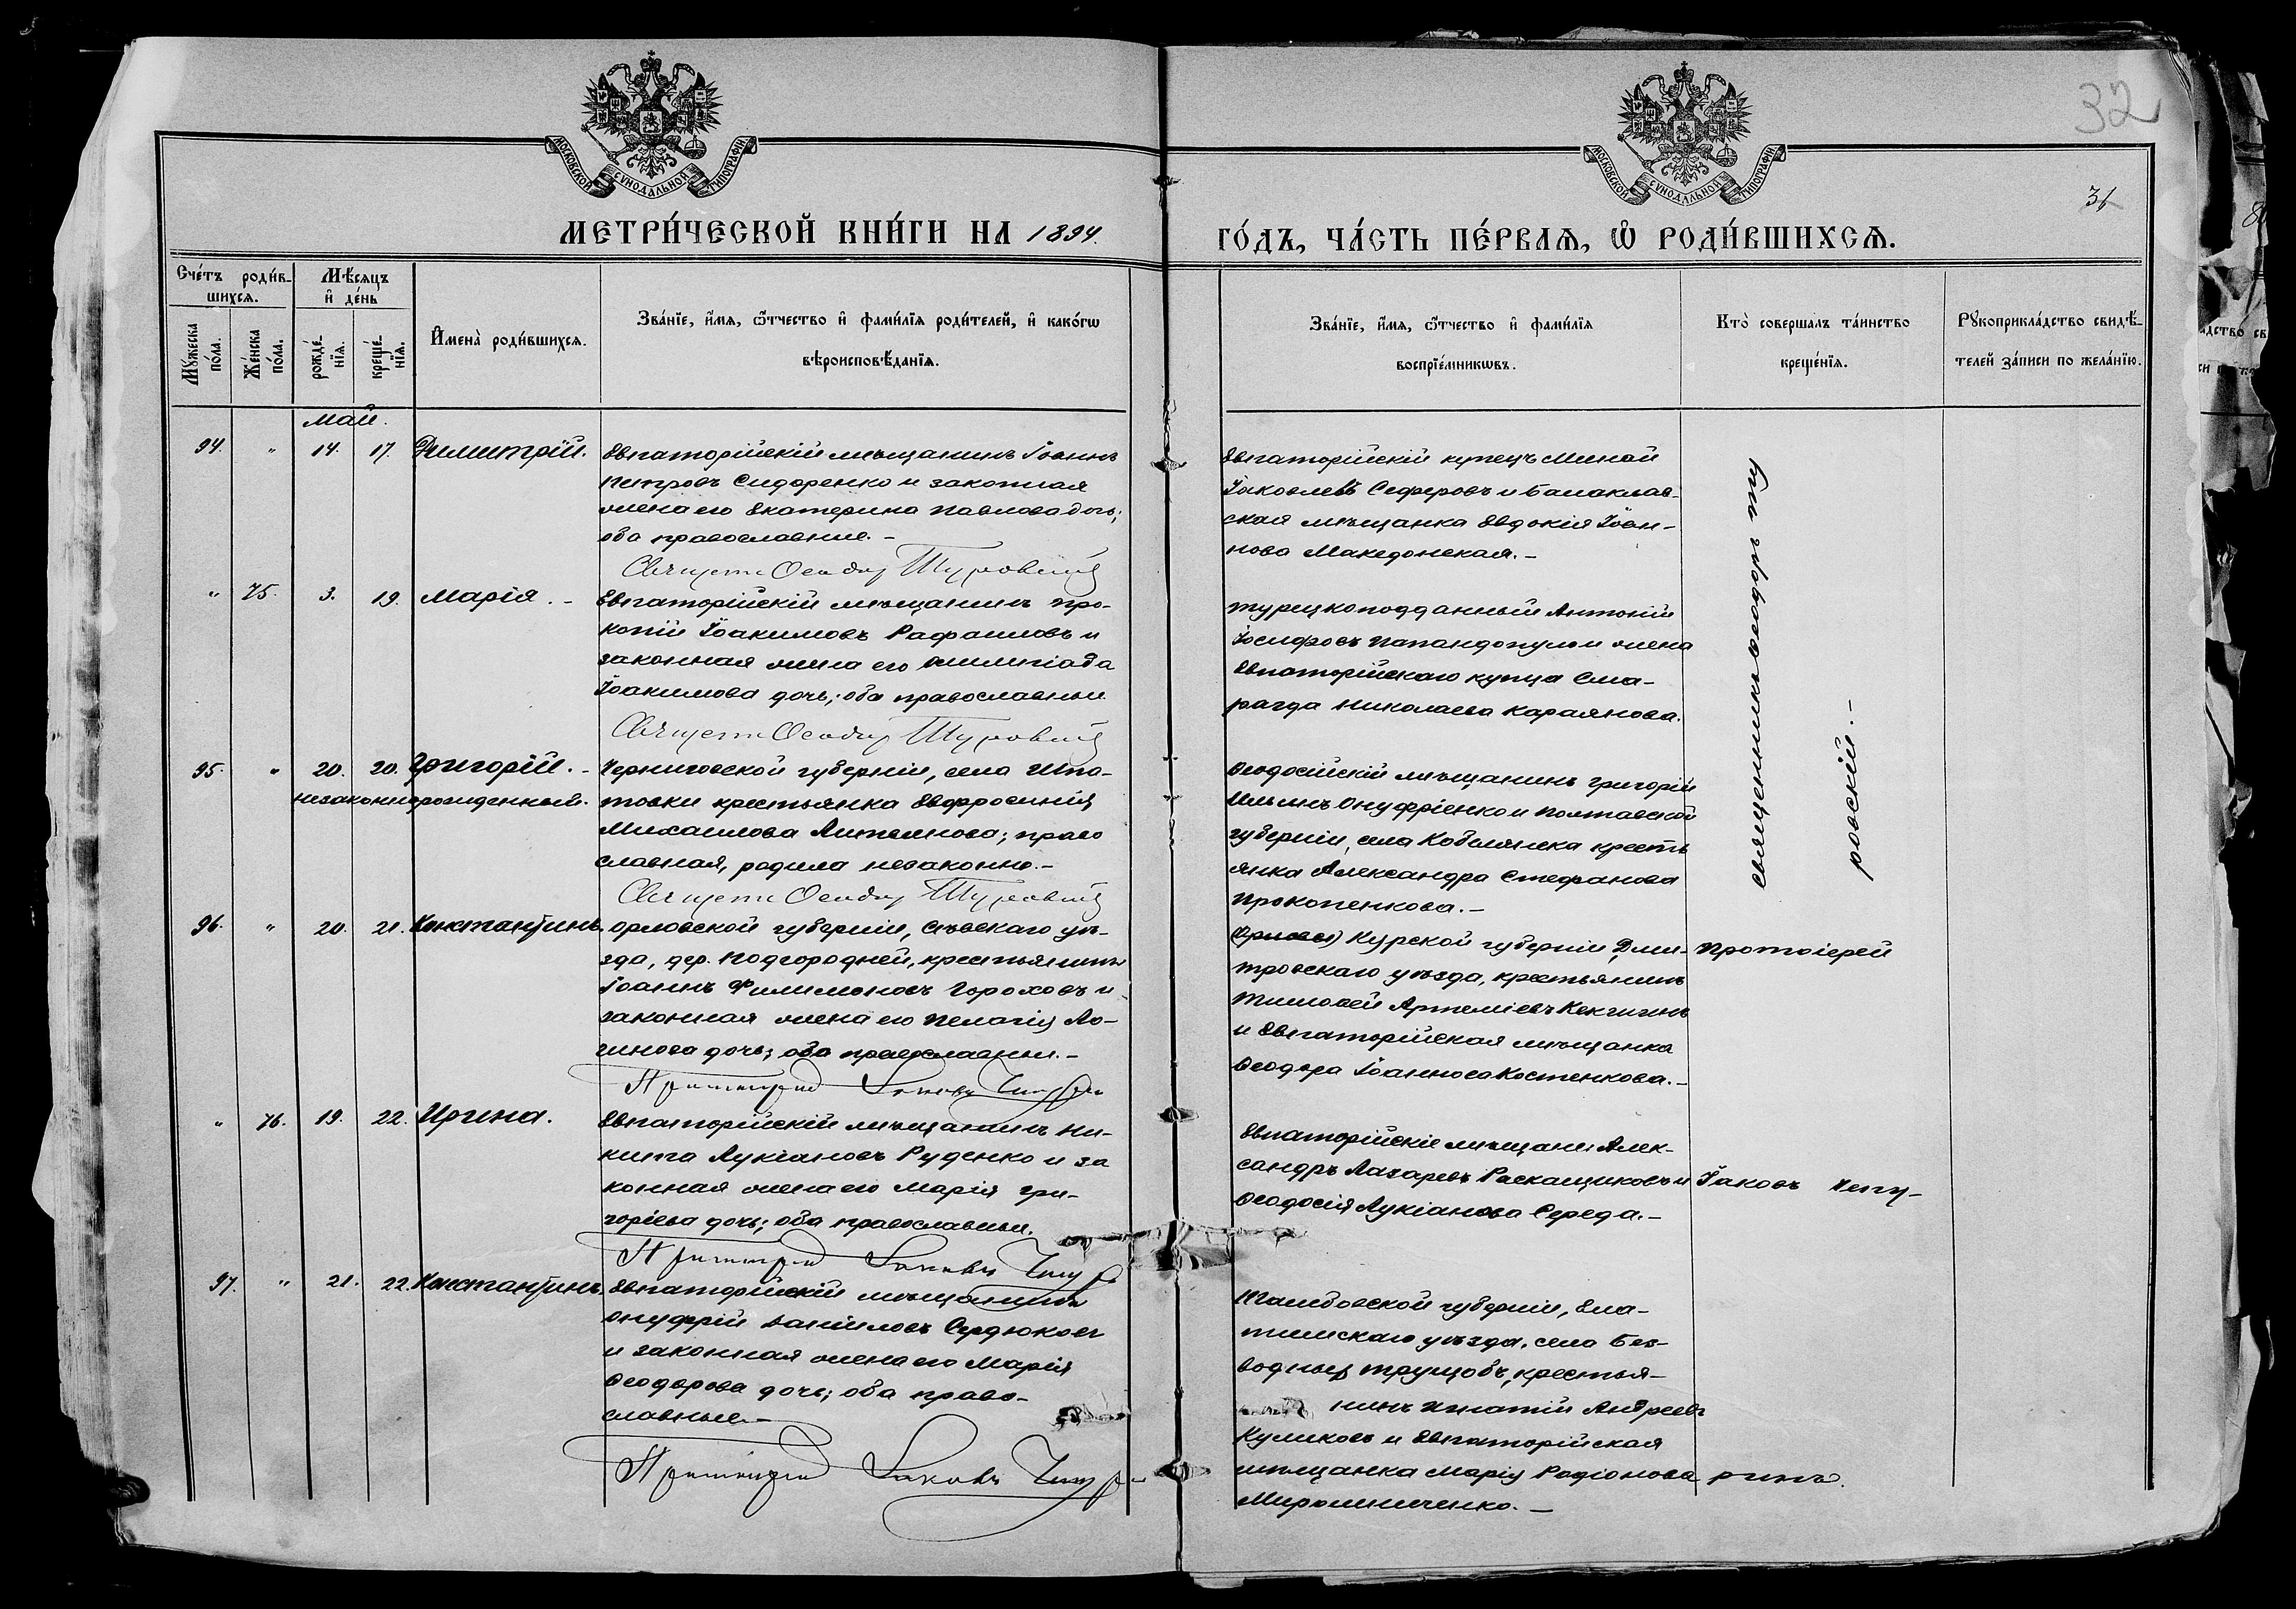 32
31
МОСКОВСКОЙ СѴНОДАЛЬНОЙ ТИПОГРАФІИ
МОСКОВСКОЙ СѴНОДАЛЬНОЙ ТИПОГРАФІИ
МЕТРИ́ЧЕСКОЙ КНИ́ГИ НА 1894.
ГО́ДЪ, ЧА́СТЬ ПЕ́РВАѦ, Ѽ РОДИ́ВШИХСѦ.
Сче́тъ роди́в-
шихсѧ.
Мꙋ́жеска по́ла.
Же́нска по́ла.
Мѣ́сѧцъ
и҆ де́нь
рожде́-нїѧ.
креще́-нїѧ.
И҆мена̀ роди́вшихсѧ.
Зва́нїе, и҆́мѧ, ѻ҆́тчество и҆ фами́лїѧ роди́телей, и҆ како́гѡ
вѣроисповѣ́данїѧ.
Зва́нїе, и҆́мѧ, ѻ҆́тчество и҆ фами́лїѧ
воспрїе́мникѡвъ.
Кто̀ совершалъ та́инство
креще́нїѧ.
Рꙋкоприкла́дство свидѣ́-
телей за́писи по жела́нїю.
Май.
94. " 14. 17. Димитрій.
Евпаторійскій мѣщанинъ Іоаннъ
Петровъ Сидоренко и законная
жена его Екатерина Павлова дочь;
оба православные.-
Священ. Ѳеодоръ Туровскій
Евпаторійскій купецъ Минай
Іаковлевъ Сеферовъ и Балаклав-
ская мѣщанка Евдокія Іоан-
нова Македонская.-
священникъ Ѳеодоръ Ту
ровскій.-
" 75. 3. 19. Марія.-
Евпаторійскій мѣщанинъ Про-
копій Іоакимовъ Рафаиловъ и
законная жена его Олимпіада
Іоакимова дочь; оба православные
Священ. Ѳеодоръ Туровскій
турецкоподданный Антоній
Іосифовъ Папандопуло и жена
Евпаторійскаго купца Сма-
рагда Николаева Караянова.
95. " 20. 20. Григорій.-
незаконнорожденный.
Черниговской губерніи, села Ипа-
товки крестьянка Евфросинія
Михаилова; право
славная, родила незаконно.-
Священ. Ѳеодоръ Туровскій
Ѳеодосійскій мѣщанинъ Григорій
Ильинъ Онуфріенко и Полтавской
губерніи, села Кобелянска кресть
янка Александра Стефанова
Прокопенкова.-
96. " 20. 21. Константинъ.
Орловской губерніи, Сѣвскаго уѣ-
зда, дер. Подгородней, крестьянинъ
Іоаннъ Филимоновъ Гороховъ и
законная жена его Пелагія Ло-
гинова дочь; оба православные.-
Протоіерей Іаковъ Чепуринъ
Курской губерніи Дми-
тровскаго уѣзда, крестьянинъ
Тимоѳей Артеміевъ
и Евпаторійская мѣщанка
Ѳеодора Іоаннова Костенкова.-
Протоіерей
" 76. 19. 22. Ирина.
Евпаторійскій мѣщанинъ Ни-
кита Лукіановъ Руденко и за
конная жена его Марія Гри-
горіева дочь; оба православные.
Протоіерей Іаковъ Чепуринъ
Евпаторійскіе мѣщане: Алек-
сандръ Лазаревъ Раскащиковъ и
Ѳеодосія Лукіанова Середа.-
Іаковъ Чепу-
97. " 21. 22. Константинъ.
Евпаторійскій мѣщанинъ
Онуфрій Даниловъ Сердюковъ
и законная жена его Марія
Ѳеодорова дочь; оба право-
славные.-
Протоіерей Іаковъ Чепуринъ
Тамбовской губерніи, Ела-
тьмскаго уѣзда, села Без-
водныхъ Трущобъ, крестья-
нинъ Игнатій Андреевъ
Куликовъ и Евпаторійская
мѣщанка Марія Родіонова
Мирошниченко.-
ринъ.